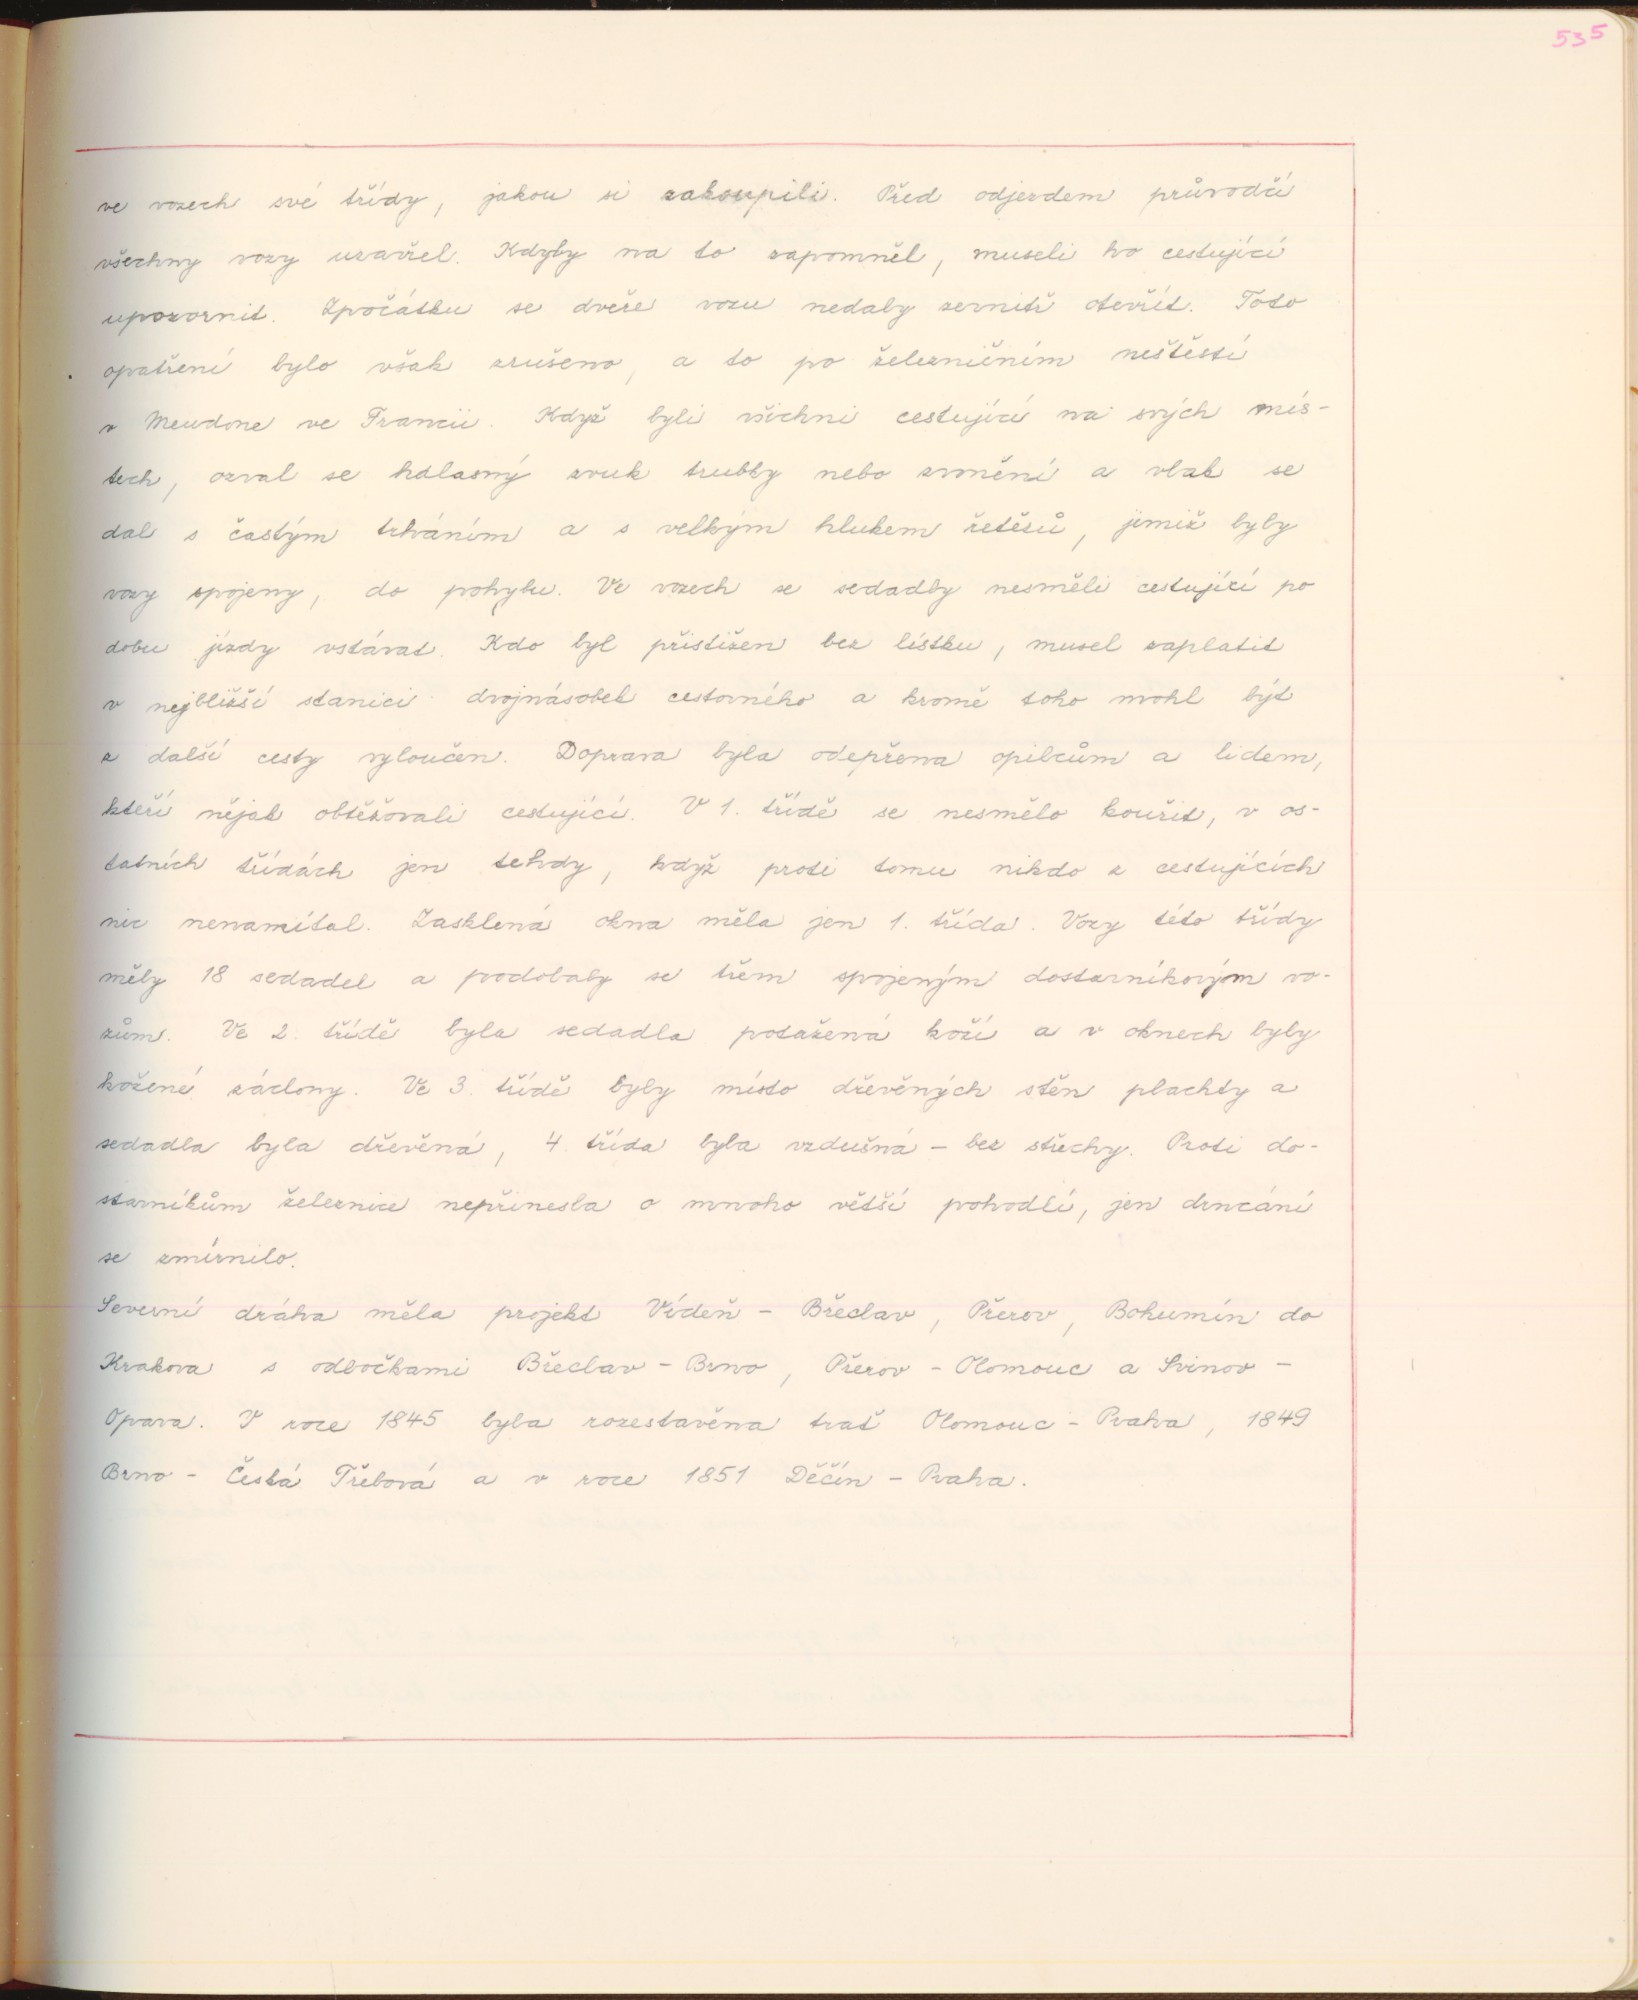 535
ve vozech své třídy, jakou si zakoupili. Před odjezdem průvodčí
všechny vozy uzavřel. Kdyby na to zapomněl, museli ho cestující
upozornit. Zpočátku se dveře vozu nedaly zevnitř otevřít. Toto
opatření bylo však zrušeno, a to po železničním neštěstí
v Meudone ve Francii. Když byli všichni cestující na svých mís-
tech, ozval se hdlasný zvuk trubky nebo zvonění a vlak se
dal s častým trháním a s velkým hlukem řetězů, jimiž byly
vozy spojeny, do pohybu. Ve vozech se sedadly nesměli cestující po
dobu jízdy vstávat. Kdo byl přistižen bez lístku, musel zaplatit
v nejbližší stanici dvojnásobek cestovného a kromě toho mohl být
z další cesty vyloučen. Doprava byla odepřena opilcům a lidem,
kteří nějak obtěžovali cestující. V 1. třídě se nesmělo kouřit, v os-
tatních třídách jen tehdy, když proti tomu nikdo z cestujících
nic nenamítal. Zasklená okna měla jen 1. třída. Vozy této třídy
měly 18 sedadel a podobaly se třem spojeným dostavníkovým vo-
zům. Ve 2. třídě byla sedadla potažená koží a v oknech byly
kožené záclony. Ve 3. třídě byly místo dřevěných stěn plachty a
sedadla byla dřevěná, 4. třída byla vzdušná - bez střechy. Proti do-
stavníkům železnice nepřinesla o mnoho větší pohodlí, jen drncání
se zmírnilo.
Severní dráha měla projekt Vídeň - Břeclav, Přerov, Bohumín do
Krakova s odbočkami Břeclav - Brno, Přerov - Olomouc a Svinov -
Opava. V roce 1845 byla rozestavěna trať Olomouc - Praha, 1849
Brno - Česká Třebová a v roce 1851 Děčín - Praha.